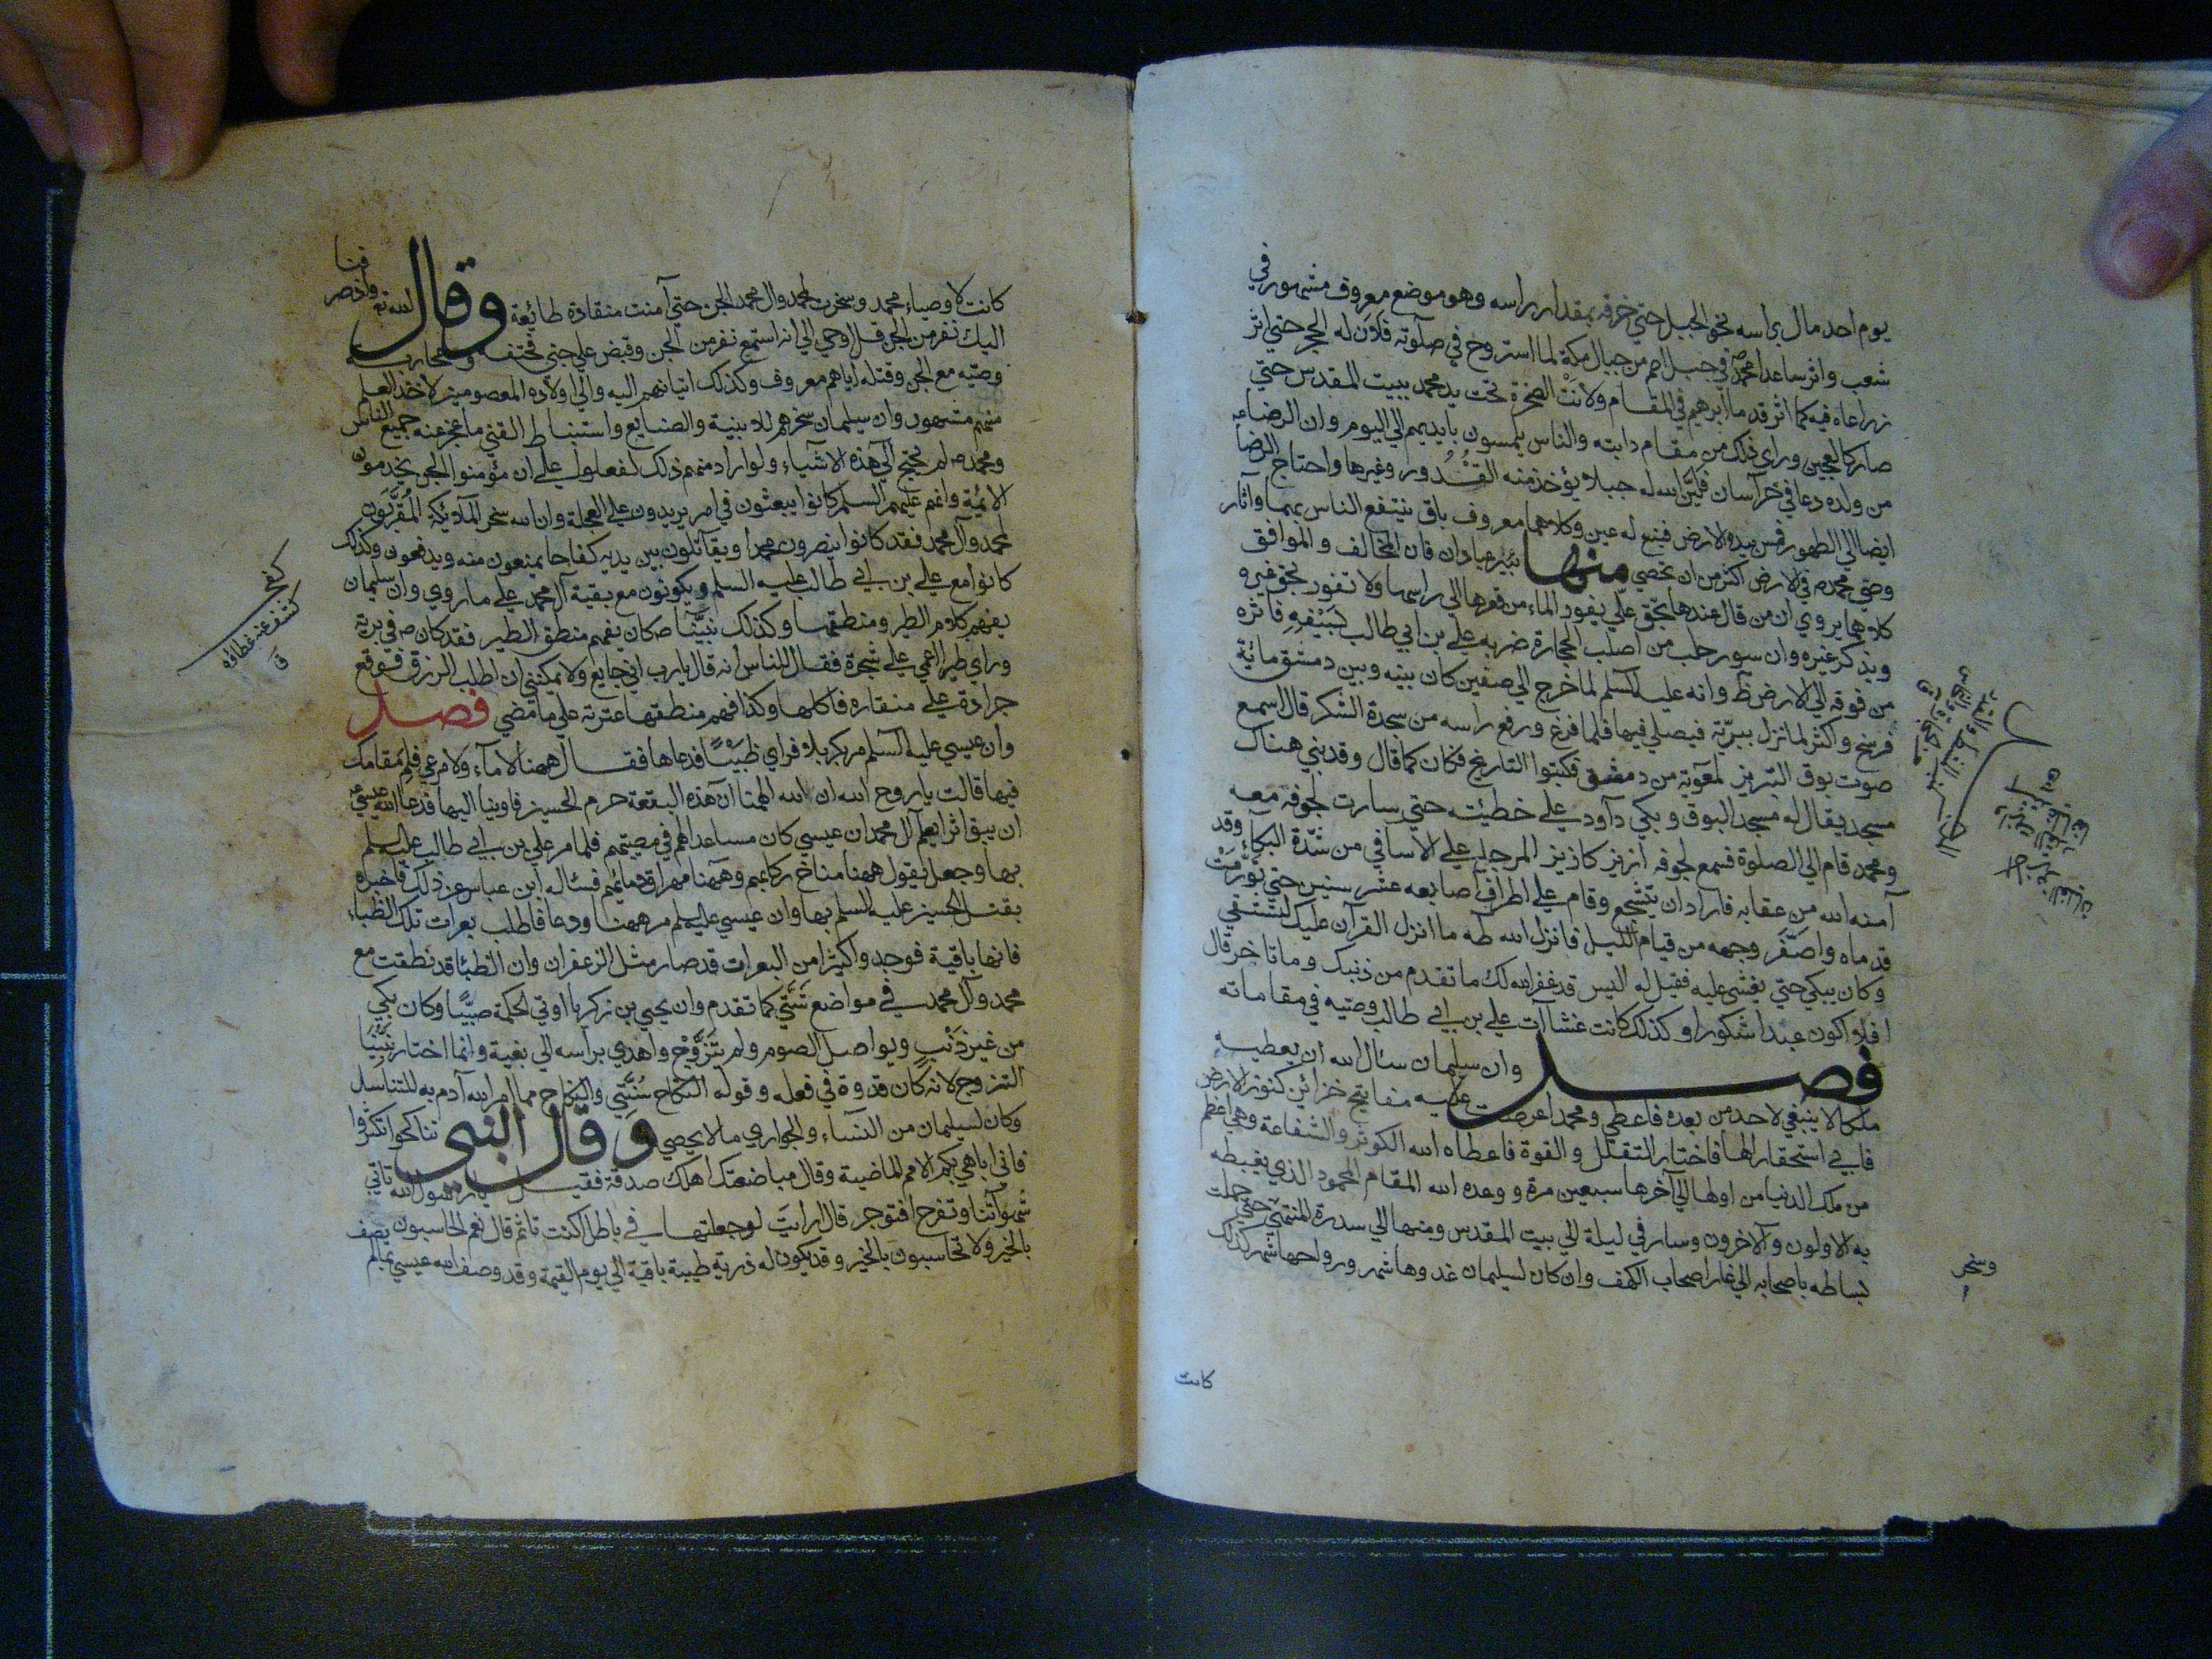 يوم احد مال راسه نحو الجبل حتي خرقه بمقدار راسه وهو موضع معروف مشهور في
شعب واثر ساعدا محمد في جبل اصم من جبال مكة لما استروح في صلوته فلان له الحجر حتي اثر
زراعاه فيه كما اثر قدما ابرهيم في المقام ولانت الصخرة تحت يد محمد ببيت المقدس حتي
صار كالعجين وراي ذلك من مقام دابته والناس يلمسون بايديهم الي اليوم وان الرضا
من ولده دعا في خراسان فلين الله له جبلا يؤخذ منه القدور وغيرها واحتاج الرضا
ايضا الي الطهور فمس بيده الارض فنبع له عين وكلاهما معروف باق ينتفع الناس بهما وآثار
وصي محمد في الارض اكثر من ان تحصي منها بئر عبادان فان المخالف والموافق
كلاهما يروي ان من قال عندها بحق علي يفور الماء من قعرها الي راسها ولا تفور بحق غيره
وبذكر غيره وان سور حلب من اصلب الحجارة ضربه علي بن ابي طالب بسيفه فاثره
من فوقه الي الارض ظ وانه عليه السلم لما خرج الي صفين كان بينه وبين دمشق مائة
فرسخ واكثر لما نزل ببرّية فيصلي فيها فلما فرغ ورفع راسه من سجدة الشكر قال اسمع
صوت بوق التبريز لمعوية من دمشق فكتبوا التاريخ فكان كما قال وقد بني هناك
مسجد يقال له مسجد البوق وبكي دآود علي خطيئته حتي سارت لجوفه معه
ومحمد قام الي الصلوة فسمع لجوفه ازيز كازيز المرجل علي الاسافي من شدّة البكاء وقد
آمنه الله من عقابه فاراد ان يتشجع وقام علي اطراف اصابعه عشر سنين حتي تورّمت
قدماه واصفّر وجهه من قيام الليل فانزل الله طه ما انزل القرآن عليك لتشقي
وكان يبكي حتي يغشي عليه فقيل له اليس قد غفر الله لك ما تقدم من ذنبك وما تاخر قال
افلا اكون عبدا شكورا وكذلك كانت غشاآت علي بن ابي طالب وصيه في مقاماته
فصل وان سليمان سئال الله ان يعطيه
ملكا لا ينبغي لاحد من بعده فاعطي ومحمد اعرضت عليه مفاتيح خزائن كنوز الارض
فابي استحقارا لها فاختار التقلل والقوة فاعطاه الله الكوثر والشفاعة وهي اعظم
من ملك الدنيا من اولها الي آخرها سبعين مرة ووعده الله المقام المحمود الذي يغبطه
به الاولون والآخرون وسار في ليلة الي بيت المقدس ومنها الي سدرة المنتهي حتي حملت
بساطه باصحابه الي غار اصحاب الكهف وان كان لسليمان غدوها شهر ورواحها شهر كذلك
وسخر
كانت
كانت لاوصياء محمد وسخرت لمحمد وال محمد الجن حتي آمنت منقادة طائعة وقال الله تع واذ صرفنا
اليك نفر من الجن قل اوحي الي انه استمع نفر من الجن وقبض علي جني فخنقه ومحاربه
وصيه مع الجن وقتله اياهم معروف وكذلك اتيانهم اليه والي اولاده المعصومين لاخذ العلم
منهم مشهور وان سليمان سخرهم للابنية والصنايع واستنباط القني ما عجز عنه جميع الناس
ومحمد لم تحتج الي هذه الاشياء ولو اراد منهم ذلك لفعلوا علي ان مؤمنوا الجن يخدمون
الائمة وانهم عليهم السلم كانوا يبعثون في امر يريدون علي العجلة وان الله سخر الملائكة المقربون
لمحمد وآل محمد فقد كانوا ينصرون محمدا ويقاتلون بين يديه كفاحا يمنعون منه ويدفعون وكذلك
كانوا مع علي بن ابي طالب عليه السلم ويكونون مع بقية آل محمد علي ما روي وان سليمان
يفهم كلام الطير ومنطقها وكذلك نبيّنا كان يفهم منطق الطير فقد كان في برية
وراي طيرا اعمي علي شجرة فقال للناس انه قال يارب اني جايع ولا يمكنني ان اطلب الرزق فوقع
جرادة علي منقاره فاكلها وكذا فهم منطقها عترته علي ما مضي فصل
وان عيسي عليه السلم مر بكربلا فراي ظبيًا فدعاها فقال ههنا لا مآء ولا مرعي فلم مقامك
فيها قالت يا روح الله ان الله الهمنا ان هذه البقعة حرم الحسين فاوينا اليها فدعا الله عيسي
ان يبق اثر ايعلم ال محمد ان عيسي كان مساعدا لهم في مصيبتهم فلما مر علي بن ابي طالب عليه السلم
بها وجعل يقول ههنا مناخ ركابهم وههنا مهراق دمائهم فسئاله ابن عباس عن ذلك فاخبره
بقتل الحسين عليه السلم بها وان عيسي عليه السلم مر ههنا ودعا فاطلب بعرات تلك الظباء
فانها باقية فوجدوا كثيرا من البعرات قد صار مثل الزعفران وان الظبا قد نطقت مع
محمد وآل محمد في مواضع شتي كما تقدم وان يحيي بن زكريا اوتي الحكمة صبيّا وكان يبكي
من غير ذنب ويواصل الصوم ولم يتزوّج واهدي براسه الي بغية وانما اختار نبيّنا
التزوج لانه كان قدوة في فعله وقوله النكاح سنتي والنكاح مما امر الله آدم به للتناسل
وكان لسليمان من النساء والجواري ما لا يحصي وقال النبي تناكحوا تكثروا
فاني اباهي بكم الامم الماضية وقال مباضعتك اهلك صدقة فقيل يا رسول الله تاتي
شهواتنا وتفرح افتوجر قال ارايت لو جعلتها في باطل اكنت تاثم قال نعم الحاسبون يصف
بالخير ولا تحاسبون بالخير وقد يكون له ذرية طيبة باقية الي يوم القيمة وقد وصف الله عيسي بمالم
كفح
كشف عنه غطاؤه
ق